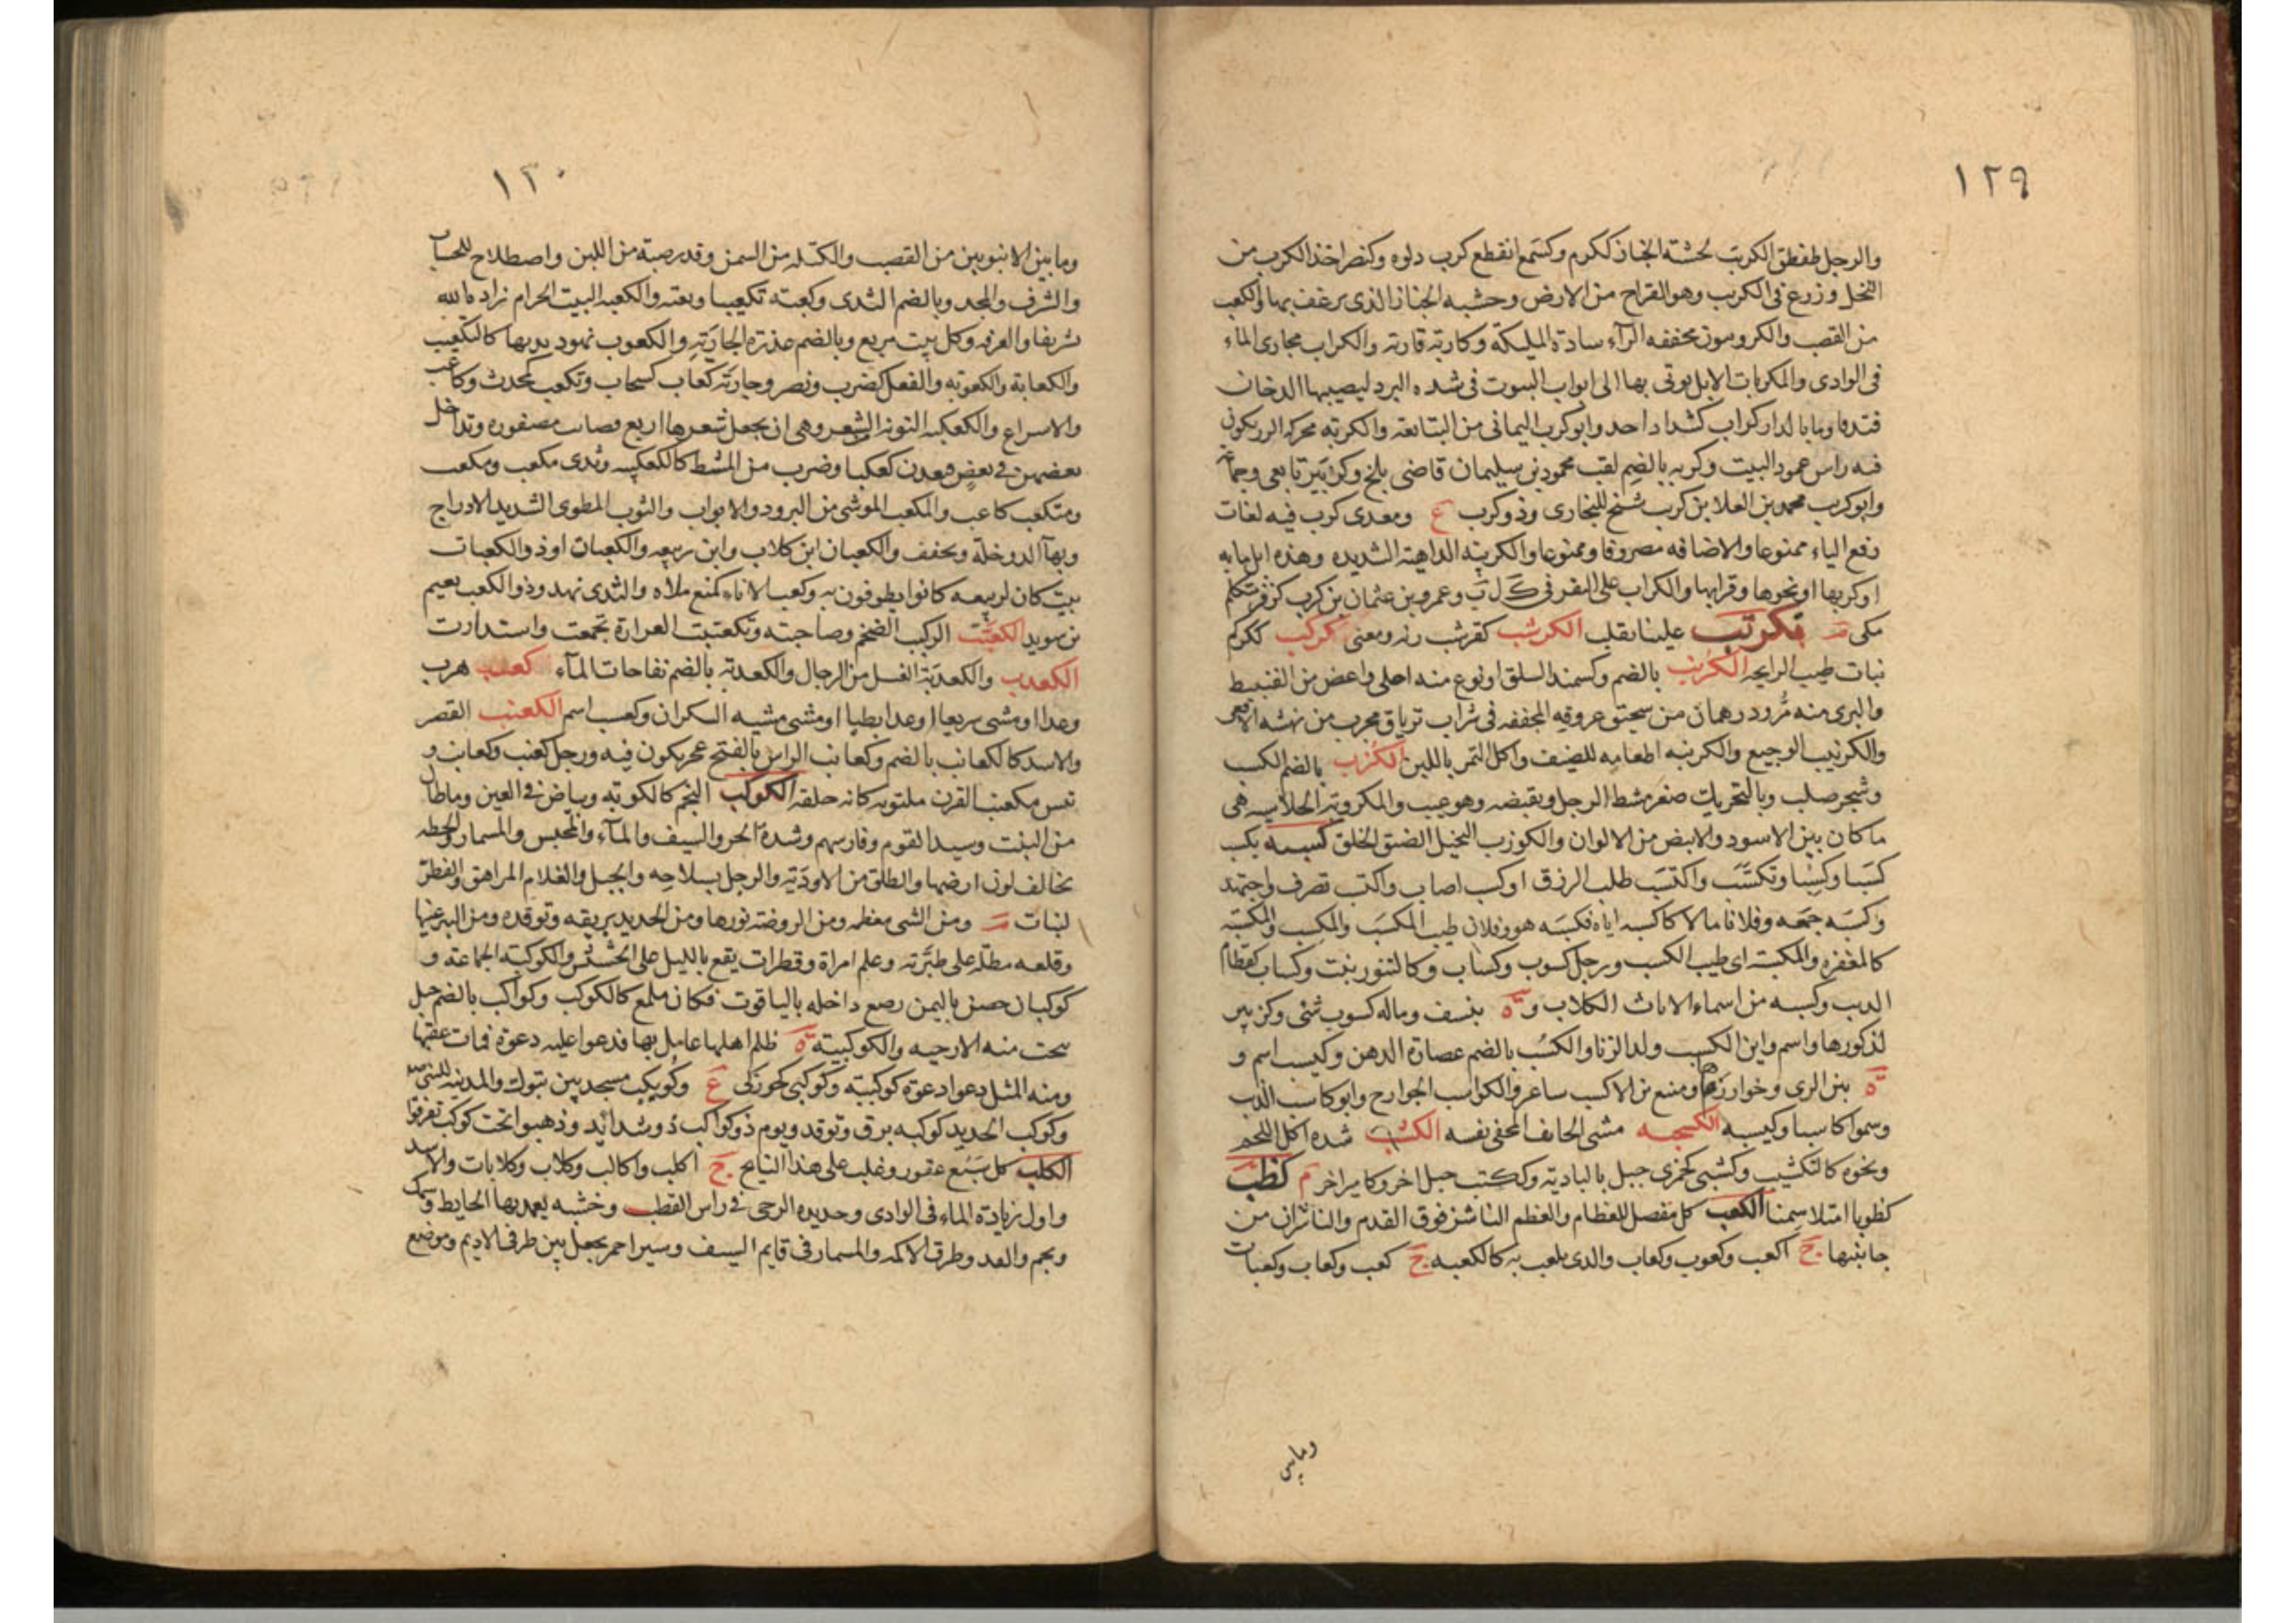 ١٢٩
والرجل طقطق الكريب لخشبة الخباز ككرم وكسمع انقطع كرب دلوه وكنصر اخذ الكرب من
النخل وزرع في الكريب وهو القراح من الارض وخشبه الخباز الذى يرغف بها والكعب
من القصب والكروبيون مخففه الرآء سادة المليكة وكاربه قاربه والكراب مجارى الماء
فى الوادى والمكربات الابل يوتى بها الى ابواب البيوت فى شده البرد ليصيبها الدخان
فتدفا وما بالدار كراب كشداد احد وابو كرب اليمانى من التبابعة والكربه محركه الزر يكون
فيه راس عمود البيت وكربه بالضم لقب محمود بن سليمان قاضى بلخ وكزبير تابعى وجماعة
وابو كريب محمد بن العلا بن كريب شيخ للبخارى وذو كريب ع ومعدى كرب فيه لغات
رفع الياء ممنوعا والاضافه مصروفا وممنوعا والكريبة الداهية الشديده وهذه ابل مايه
او كربها او نحوها وقرابها والكراب على البقر فى ك ل ب وعمرو بن عثمان بن كرب كزفر متكلم
مكى تكرتب علينا تقلب الكرشب كقرشب زنه ومعنى كركب ككركم
نبات طيب الرايحه الكرنب بالضم وكسمند السلق او نوع منه احلى واغض من القنبيط
والبرى منه مر ودرهمان من سحيق عروقه المجففه فى شراب ترياق مجرب من نهشه الافعى
والكرنيب الوجيع والكرنبه اطعامه للضيف واكل التمر باللبن الكزب بالضم الكسب
وشجر صلب وبالتحريك صغر مشط الرجل وتقبضه وهو عيب والمكزوبة الخلاسيه هى
ما كان بين الاسود والابيض من الالوان والكوزب البخيل الضيق الخلق كسبه يكسب
كسبا وكسبا وتكسب واكتسب طلب الرزق او كسب اصاب واكتسب تصرف واجتهد
وكسبه جمعه وفلانا مالا كاكسبه اياه فكسبه هو وفلان طيب المكسب والمكسب والمكسبة
كالمغفرة والكسبة اى طيب الكسب ورجل كسوب وكساب وكالتنور نبت وكساب كقطام
الذيب وكسبه من اسماء الاناث الكلاب وة بنسف وماله كسوب شئ وكزبير
لذكورها واسم وابن الكسيب ولد الزنا والكسب بالضم عصارة الدهن وكيسب اسم و
ة بين الرى وخوار زم ومنيع بن الاكسب شاعر والكواسب الجوارح وابو كاسب الذيب
وسموا كاسبا وكيسبه الكسحبه مشى الخايف المخفى نفسه الكشب شده اكل اللحم
ونحوه كالتكشيب وكشبى كجمزى جبل بالبادية وككتب جبل اخر وكامير اخر م كظب
كظوبا امتلا سمنا الكعب كل مفصل للعظام والعظم الناشز فوق القدم والناشزان من
جانبيها ج اكعب وكعوب وكعاب والذى يلعب به كالكعبه ج كعب وكعاب وكعبات
وما بين
١٣٠
وما بين الانبوبين من القصب والكتله من السمن وقدر صبة من اللبن واصطلاح للحساب
والشرف والمجد وبالضم الثدى وكعبته تكعيبا ربعته والكعبه البيت الحرام زاده الله
تشريفا والغرفه وكل بيت مربع وبالضم عذرة الجارية والكعوب نهود ثديها كالتكعيب
والكعابة والكعوبه والفعل كضرب ونصر وجاريه كعاب كسحاب وتكعب كمحدث وكاعب
والاسراع والكعكبه النونة الشعر وهى ان يجعل شعرها اربع قصاب مضفوره وتداخل
بعضهن في بعض فيعدن كعكبا وضرب من المشط كالكعكبيه وثدى مكعب ومكعب
ومتكعب كاعب والمكعب الموشى من البرود والابواب والثوب المطوى الشديد الادراج
وبهآ الدوخلة وتخفف والكعبان ابن كلاب وابن ربيعه والكعبات او ذو الكعبات
بيت كان لربيعه كانوا يطوفون به وكعب الاناء كمنع ملاه والثدى نهد وذو الكعب نعيم
بن سويد الكعثب الركب الضخم وصاحبته وتكعثبت العرارة تجمعت واستدارت
الكعدب والكعدبة الفسل من الرجال والكعدبة بالضم نفاخات المآء كعسب هرب
وعدا او مشى سريعا او عدا بطيا او مشى مشيه السكران وكعسب اسم الكعنب القصير
والاسد كالكعانب بالضم وكعانب الراس بالفتح عجر يكون فيه ورجل كعنب وكعانب و
تيس مكعنب القرن ملتويه كانه حلقه الكوكب النجم كالكوكبه وبياض في العين وما طال
من النبت وسيد القوم وفارسهم وشدة الحر والسيف والمآء والمحبس والمسمار والخطه
يخالف لون ارضها والطلق من الاودية والرجل بسلاحه والجبل والغلام المراهق والفطر
لنبات م ومن الشى معظمه ومن الروضة نورها ومن الحديد بريقه وتوقده ومن البير عينها
وقلعه مطله على طبرية وعلم امراة وقطرات يقع بالليل على الحشيش والكوكبة الجماعة و
كوكبان حصن باليمن رصع داخله بالياقوت فكان يلمع كالكوكب وكواكب بالضم جبل
ينحت منه الارحيه والكوكبية ة ظلم اهلها عامل بها فدعوا عليه دعوة فمات عقبها
ومنه المثل دعوا دعوة كوكبية وكوكبى كخوزلى ع وكويكب مسجد بين تبوك والمدينه للنبى
وكوكب الحديد كوكبه برق وتوقد ويوم ذو كواكب ذو شدائد وذهبوا تحت كوكب تفرقوا
الكلب كل سبع عقور وغلب على هذا النابح ج اكلب واكالب وكلاب وكلابات والاسد
واول زيادة الماء فى الوادى وحديده الرحى في راس القطب وخشبه يعمد بها الحايط وسمك
ونجم والقد وطرف الاكمه والمسمار فى قايم السيف وسير احمر يجعل بين طرفى الاديم وموضع